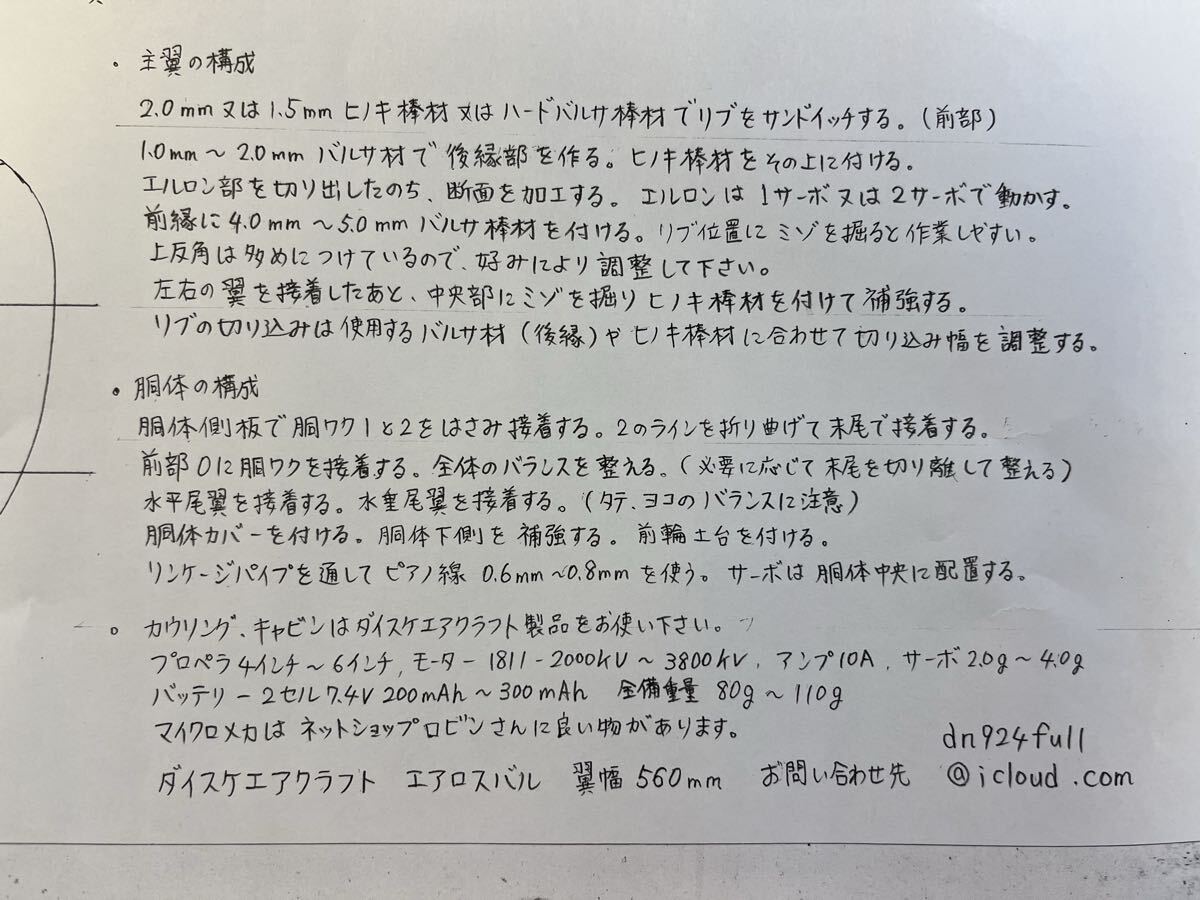 ・主翼の構成
2.0mm又は1.5mmヒノキ棒材又はハードバルサ棒材でリブをサンドイッチする。(前部)
1.0mm～2.0mmバルサ材で後縁部を作る。ヒノキ棒材をその上に付ける。
エルロン部を切り出したのち、断面を加工する。エルロンは1サーボ又は2サーボで動かす。
前縁に4.0mm～5.0mmバルサ棒材を付ける。リブ位置にミゾを掘ると作業しやすい。
上反角は多めにつけているので、好みにより調整して下さい。
左右の翼を接着したあと、中央部にミゾを掘りヒノキ棒材を付けて補強する。
リブの切り込みは使用するバルサ材(後縁)やヒノキ棒材に合わせて切り込み幅を調整する。
・胴体の構成
胴体側板で胴ワク1と2をはさみ接着する。2のラインを折り曲げて末尾で接着する。
前部0に胴ワクを接着する。全体のバランスを整える。(必要に応じて末尾を切り離して整える)
水平尾翼を接着する。水垂尾翼を接着する。(タテ、ヨコのバランスに注意)
胴体カバーを付ける。胴体下側を補強する。前輪土台を付ける。
リンケージパイプを通してピアノ線0.6mm～0.8mmを使う。サーボは胴体中央に配置する。
。カウリング、キャビンはダイスケエアクラフト製品をお使い下さい。
プロペラ4インチ～6インチ,モーター1811-2000kV～3800kV,アンプ10A,サーボ2.0g～4.0g
バッテリー2セル7.4V 200mAh～300mAh 全備重量 80g～110g
マイクロメカはネットショップロビンさんに良い物があります。
dn924full
ダイスケエアクラフト エアロスバル 翼幅560mm お問い合わせ先 @icloud.com